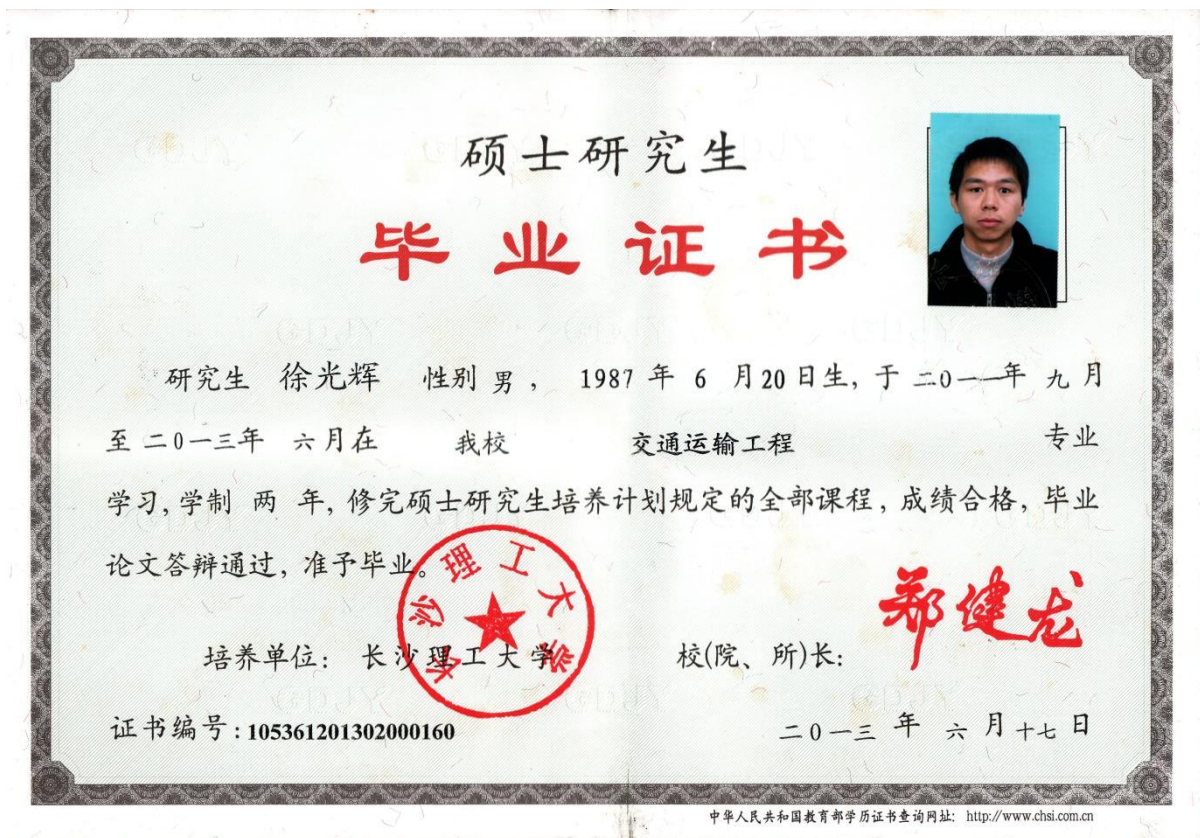 硕士研究生
毕业证书
研究生 徐光辉 性别 男， 1987 年 6 月20日生，于 二0一一年 九月
至 二0一三年 六月在 我校 交通运输工程 专业
学习，学制 两 年，修完硕士研究生培养计划规定的全部课程，成绩合格，毕业
论文答辩通过，准予毕业。
长沙理工大学
郑健龙
培养单位： 长沙理工大学 校(院、所)长：
证书编号：105361201302000160 二0一三 年 六 月十七日
中华人民共和国教育部学历证书查询网址： http://www.chsi.com.cn